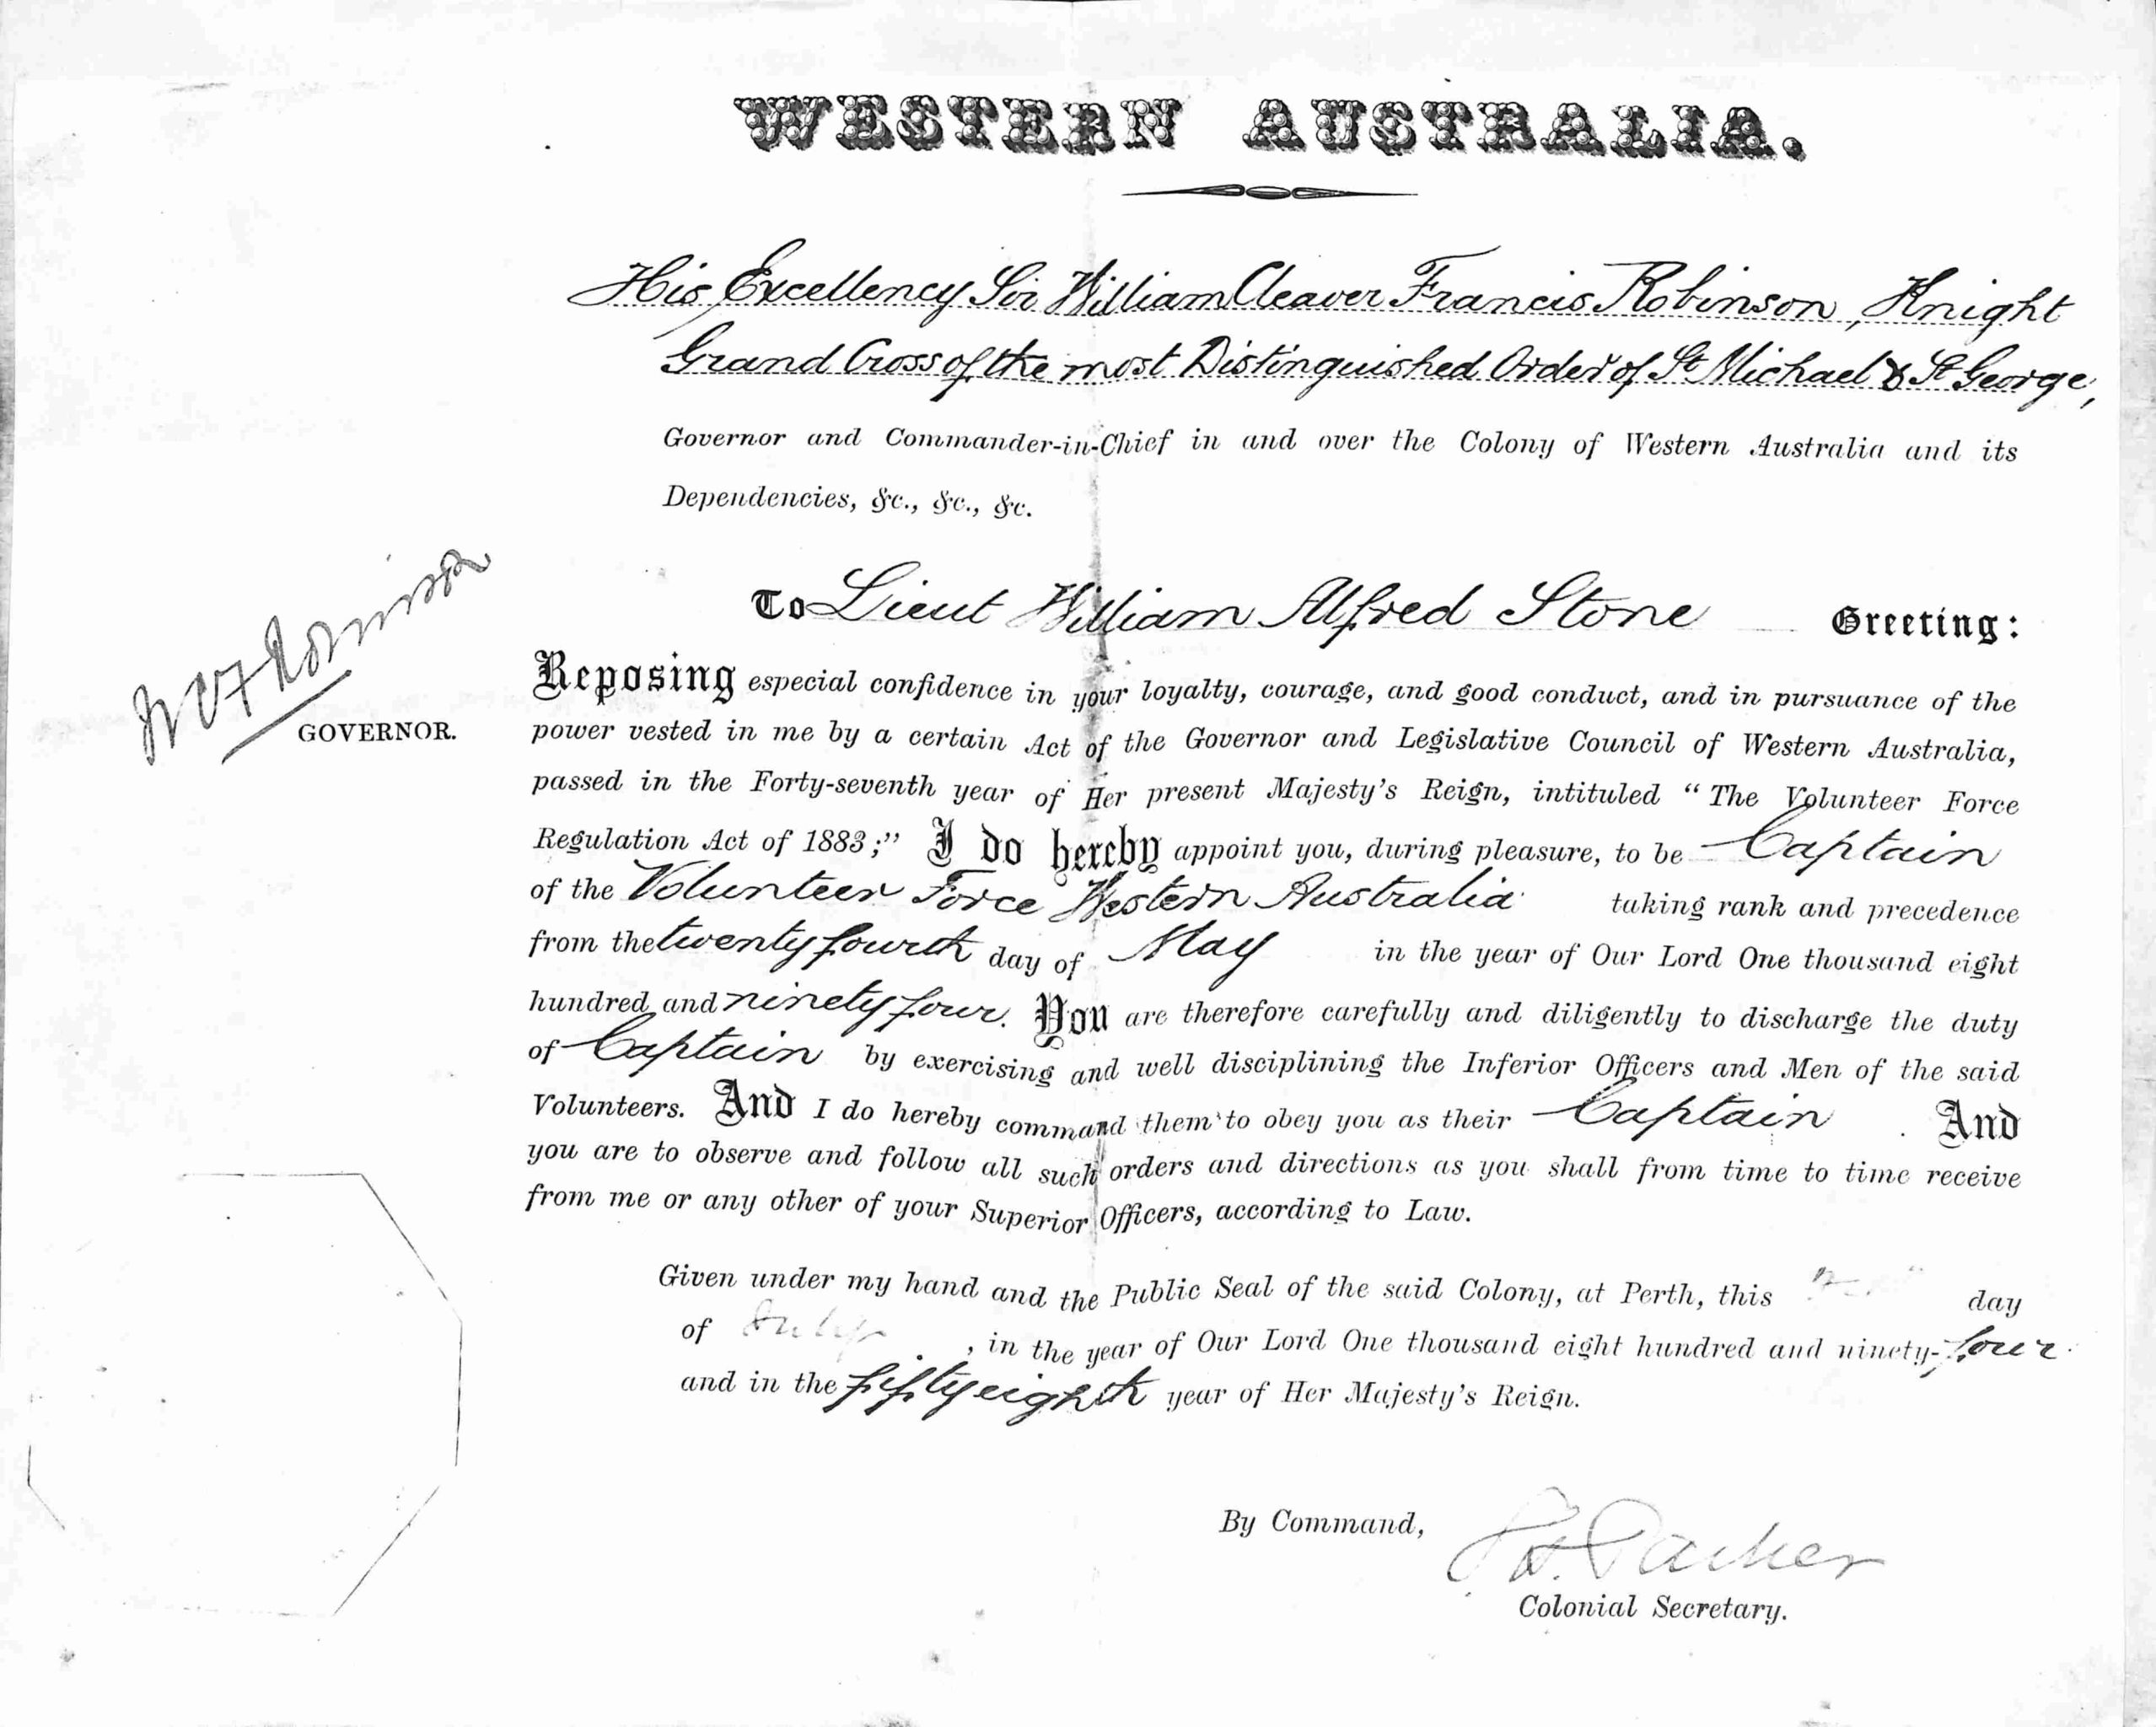 WESTERN AUSTRALIA.
His Excellency Sir William Cleaver Francis Robinson, Knight
Grand Cross of the most Distinguished Order of St Michael & St George,
Governor and Commander-in-Chief in and over the Colony of Western Australia and its
Dependencies, &c., &c., &c.
To Lieut William Alfred Stone Greeting:
W C F Robinson
GOVERNOR.
Reposing especial confidence in your loyalty, courage, and good conduct, and in pursuance of the
power vested in me by a certain Act of the Governor and Legislative Council of Western Australia,
passed in the Forty-seventh year of Her present Majesty's Reign, intituled "The Volunteer Force
Regulation Act of 1883;" I do hereby appoint you, during pleasure, to be Captain
of the Volunteer Force Western Australia taking rank and precedence
from the twenty fourth day of May in the year of Our Lord One thousand eight
hundred and ninety four. You are therefore carefully and diligently to discharge the duty
of Captain by exercising and well disciplining the Inferior Officers and Men of the said
Volunteers. And I do hereby command them to obey you as their Captain. And
you are to observe and follow all such orders and directions as you shall from time to time receive
from me or any other of your Superior Officers, according to Law.
Given under my hand and the Public Seal of the said Colony, at Perth, this day
of July, in the year of Our Lord One thousand eight hundred and ninety-four
and in the fifty eighth year of Her Majesty's Reign.
By Command,
S. H. Parker
Colonial Secretary.